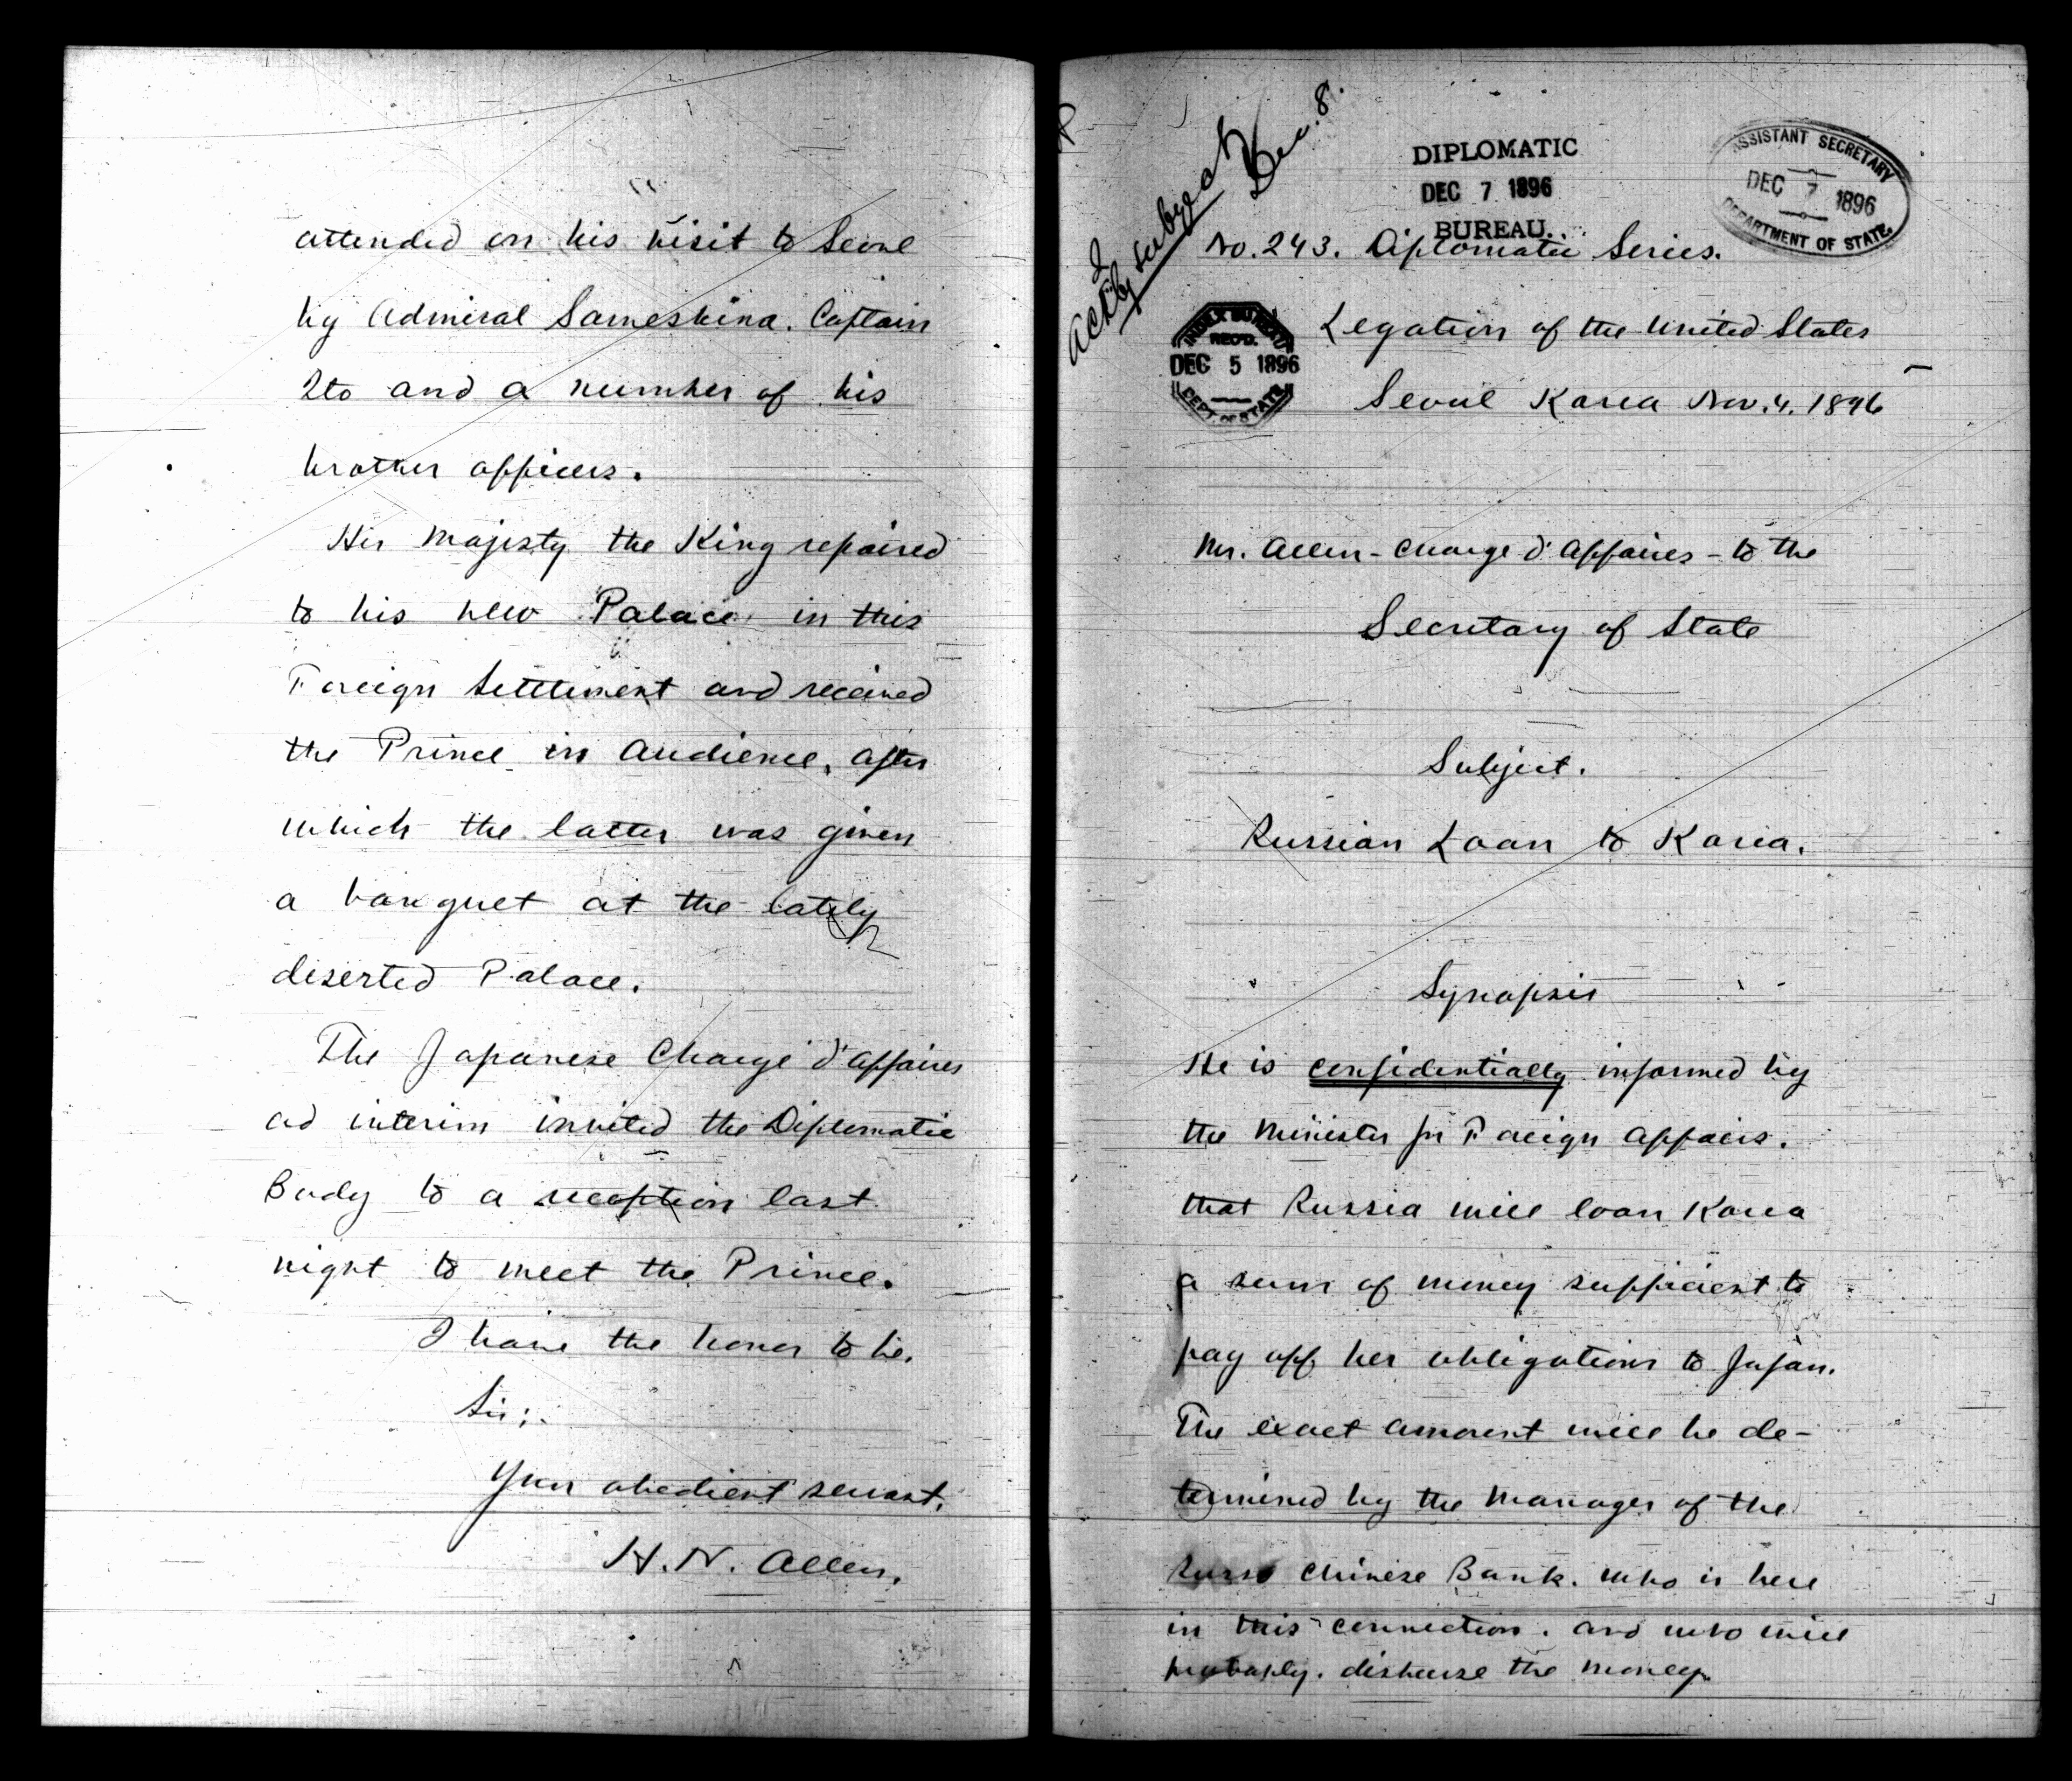 attended on his visit to Seoul
by Admiral Sameshima. Captain
Ito and a number of his
brother officers.
His Majesty the King repaired
to his new Palace in this
Foreign Settlement and received
the Prince in audience, after
which the latter was given
a banquet at the lately
deserted Palace.
The Japanese Charge d'Affaires
ad interim invited the Diplomatic
Body to a reception last
night to meet the Prince.
I have the honor to be,
Sir;
Your obedient servant,
H. N. Allen.
Dec. 8.
DIPLOMATIC
DEC 7 1896
BUREAU.
ASSISTANT SECRETARY
DEC 7 1896
DEPARTMENT OF STATE.
No. 243. Diplomatic Series.
INDEX BUREAU
REC'D.
DEC 5 1896
DEPT. OF STATE
Legation of the United States
Seoul Korea Nov. 4. 1896
Mr. Allen - Charge d'Affaires - to the
Secretary of State
Subject.
Russian Loan to Korea.
Synopsis
He is confidentially informed by
the Minister for Foreign Affairs.
that Russia will loan Korea
a sum of money sufficient to
pay off her obligations to Japan.
The exact amount will be de-
termined by the Manager of the
Russo Chinese Bank. who is here
in this connection. and who will
probably. disburse the money.